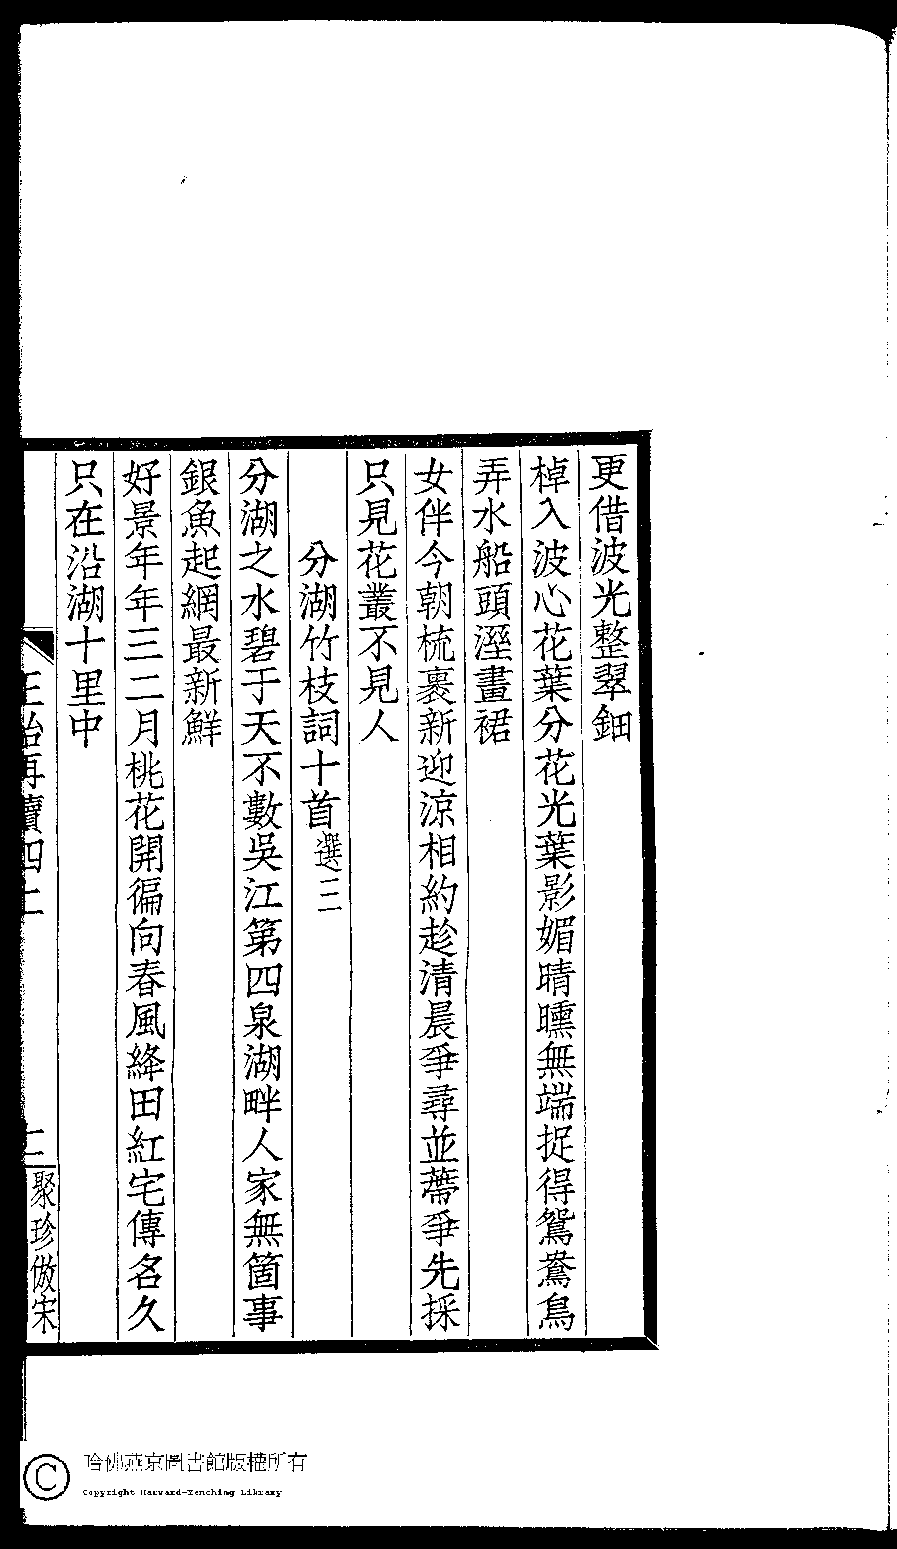 更借波光整翠鈿
棹入波心花葉分花光葉影媚晴曛無端捉得鴛鴦鳥
弄水船頭溼畫裙
女伴今朝梳裹新迎涼相約趁清晨爭尋並蔕爭先採
只見花叢不見人
分湖竹枝詞十首選三
分湖之水碧于天不數吳江第四泉湖畔人家無箇事
銀魚起網最新鮮
好景年年三二月桃花開徧向春風絳田紅宅傳名久
只在沿湖十里中
再續四
聚珍倣宋
哈佛燕京圖書館版權所有
Copyright Harvard-Yenching Library